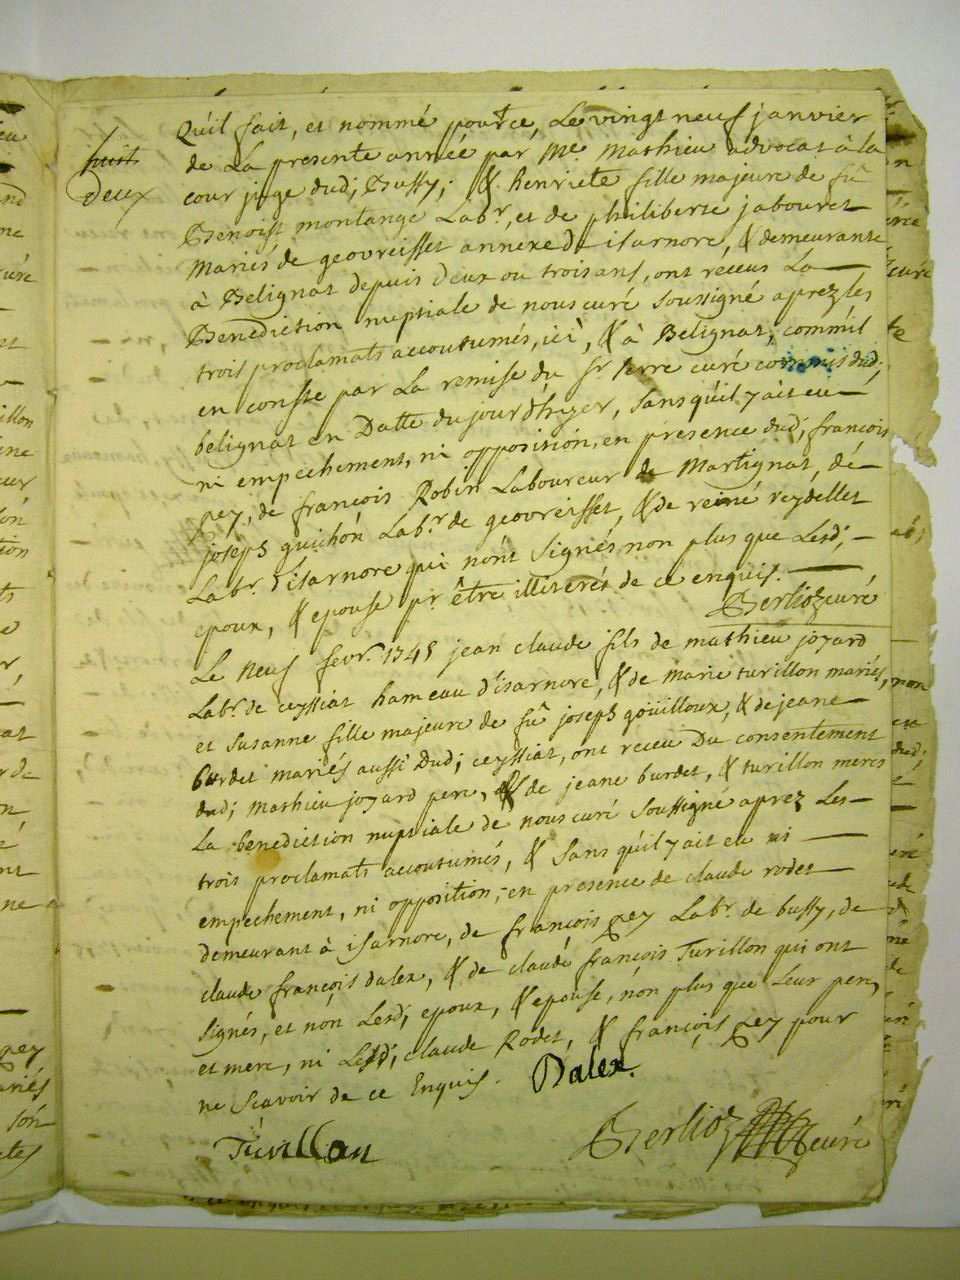 huit
deux
Qu'il fait, et nommé pour ce, Le vingt neuf janvier
de La presente année par Me. Mathieu advocat à la
cour juge dud; Bussy; & henriete fille majeure de fû
Benoist montange Labr. et de philiberte jabouret
Mariés de geovreisset annexe d'isarnore, & demeurante
à Belignat depuis deux ou trois ans, ont réceus La
Benediction nuptiale de nous curé soussigné aprez les
trois proclamats accoutumés, ici, & à Belignat, comm'il
en conste par La remise du Sr. curé commis dud;
belignat en Datte du jour d'hyer, sans qu'il y ait eu
ni empechement, ni opposition, en presence dud; françois
rey, de françois Robin Laboureur de Martignat, de
joseph guichon Labr. de geovreisset, & de reiné reydellet
Labr. d'isarnore qui n'ont signés, non plus que Lesd;
epoux, & epouse pr. être illiterés de ce enquis.
Berlioz curé
Le Neuf fevr. 1745 jean claude fils de mathieu joyard
Labr. de ceyssiat hameau d'isarnore, & de marie turillon mariés,
et susanne fille majeure de fû joseph goüilloux, & de jeane
burdet mariés aussi Dud; ceyssiat, ont receu Du consentement
dud; mathieu joyard pere, & de jeane burdet, & turillon meres
La benediction nuptiale de nous curé soussigné aprez Les
trois proclamats accoutumés, & sans qu'il y ait eu ni
empechement, ni opposition; en presence de claude rodet
demeurant à isarnore, de françois rey Labr. de bussy, de
claude françois dalex, & de claude françois Turillon qui ont
signés, et non Lesd; epoux, & epouse, non plus que Leur pere,
et mere, ni Lesd; claude Rodet, & françois rey pour
ne sçavoir de ce Enquis. Dalex.
Turillon
Berlioz curé